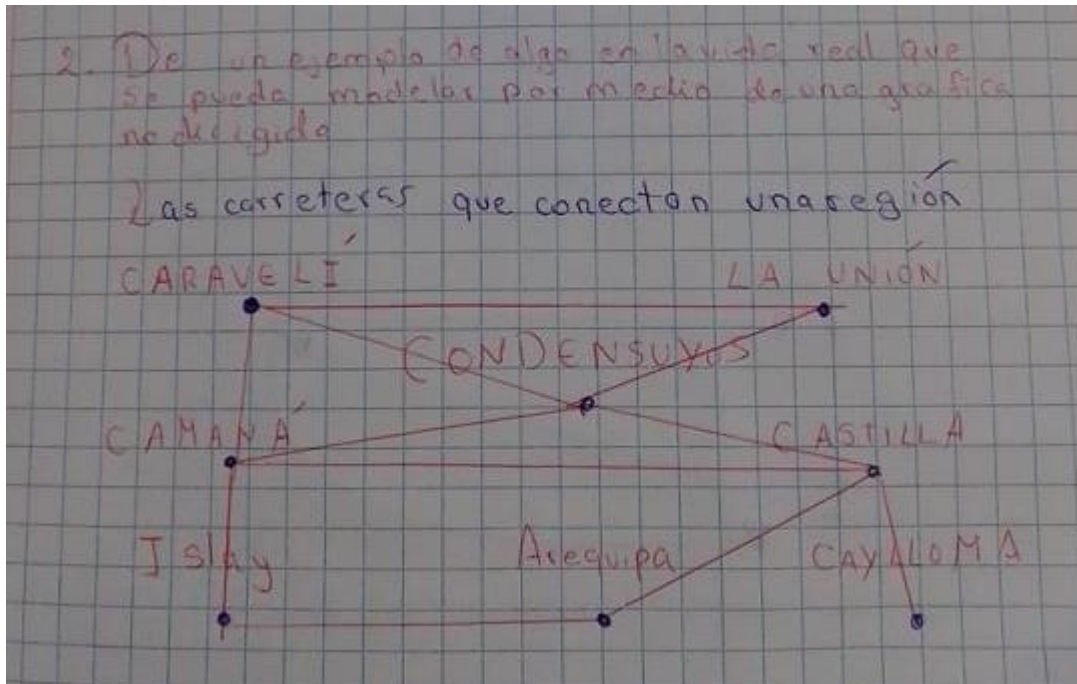 2. De un ejemplo de algo en la vida real que
se pueda modelar por medio de una grafica
no dirigida
Las carreteras que conectan una región
CARAVELÍ LA UNIÓN
CONDENSUYOS
CAMANÁ CASTILLA
Islay Arequipa CAYALOMA